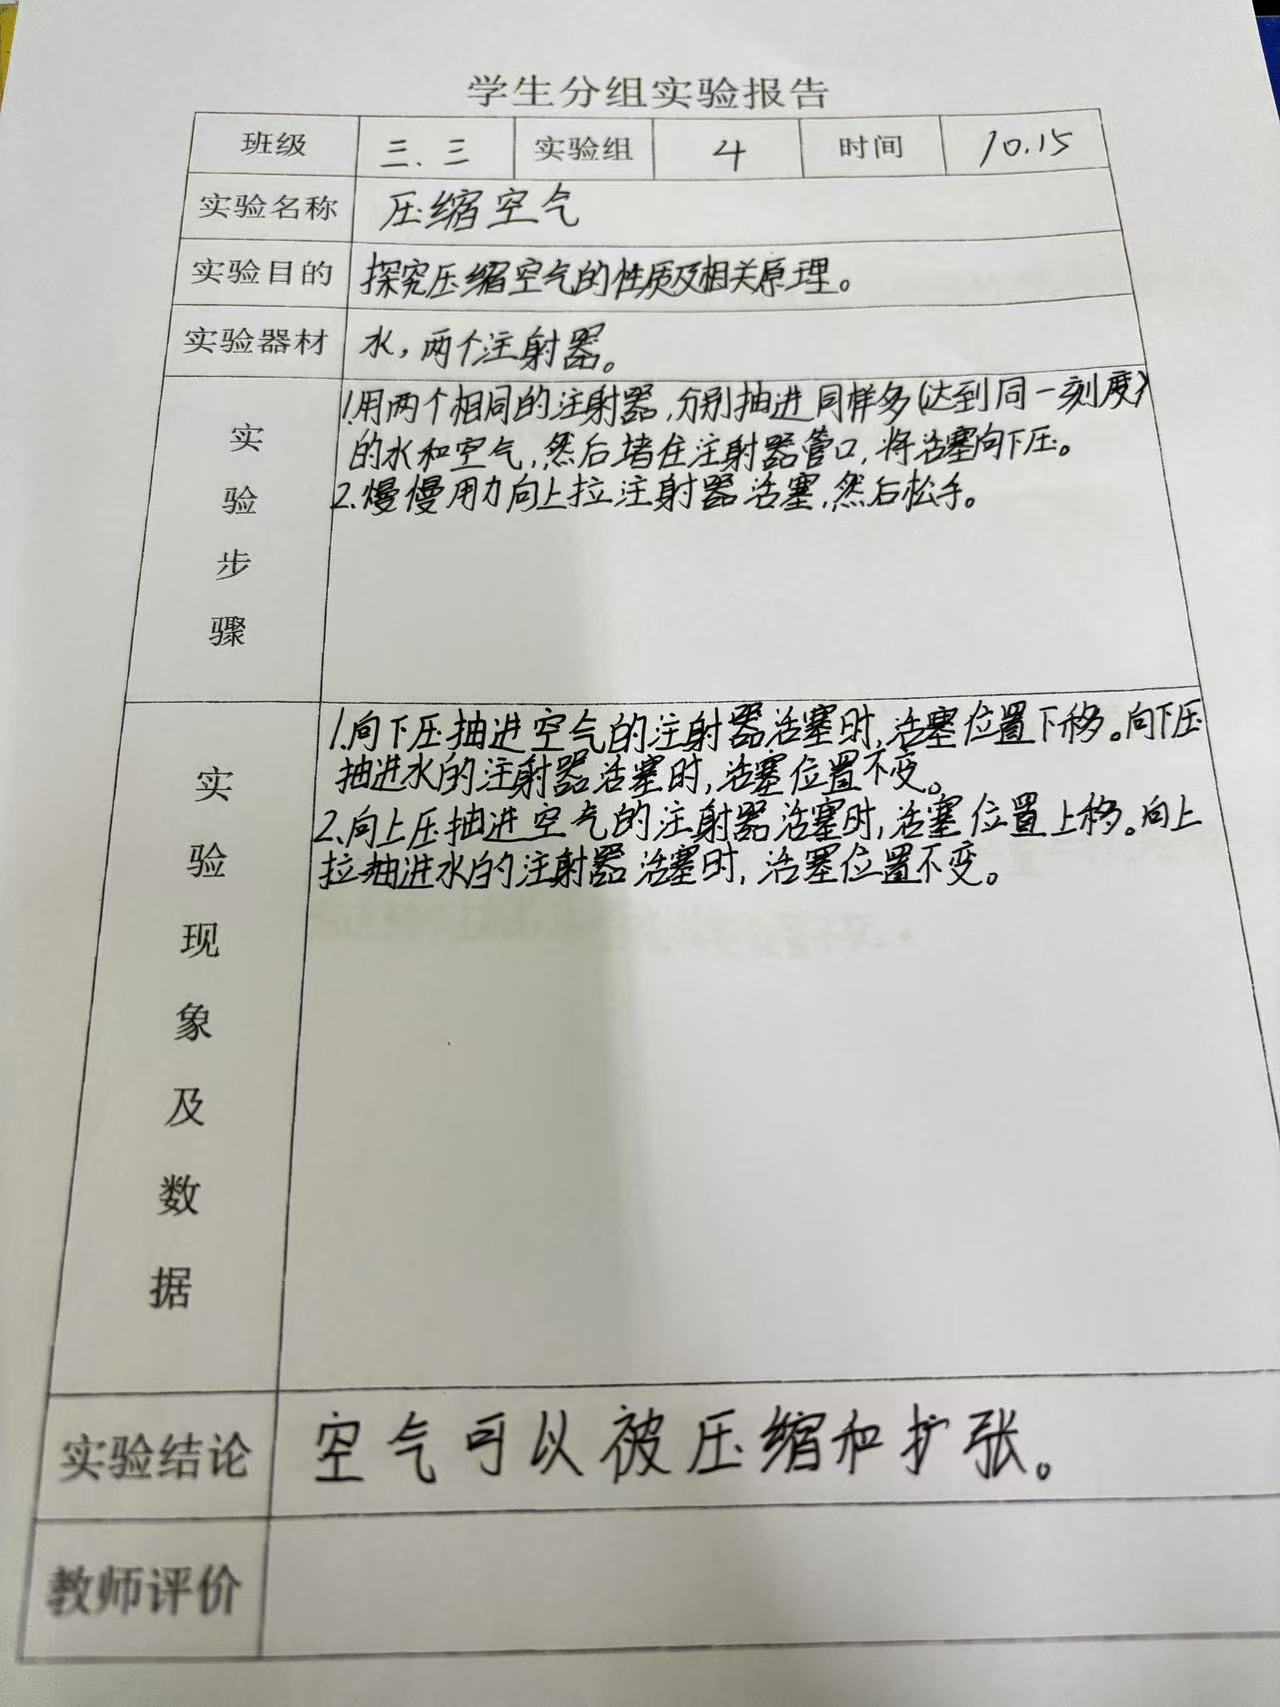 学生分组实验报告
班级 三.三 实验组 4 时间 10.15
实验名称 压缩空气
实验目的 探究压缩空气的性质及相关原理。
实验器材 水，两个注射器。
实验步骤
1.用两个相同的注射器，分别抽进同样多(达到同一刻度)
的水和空气，然后堵住注射器管口，将活塞向下压。
2.慢慢用力向上拉注射器活塞，然后松手。
实验现象及数据
1.向下压抽进空气的注射器活塞时，活塞位置下移。向下压
抽进水的注射器活塞时，活塞位置不变。
2.向上压抽进空气的注射器活塞时，活塞位置上移。向上
拉抽进水的注射器活塞时，活塞位置不变。
实验结论 空气可以被压缩和扩张。
教师评价